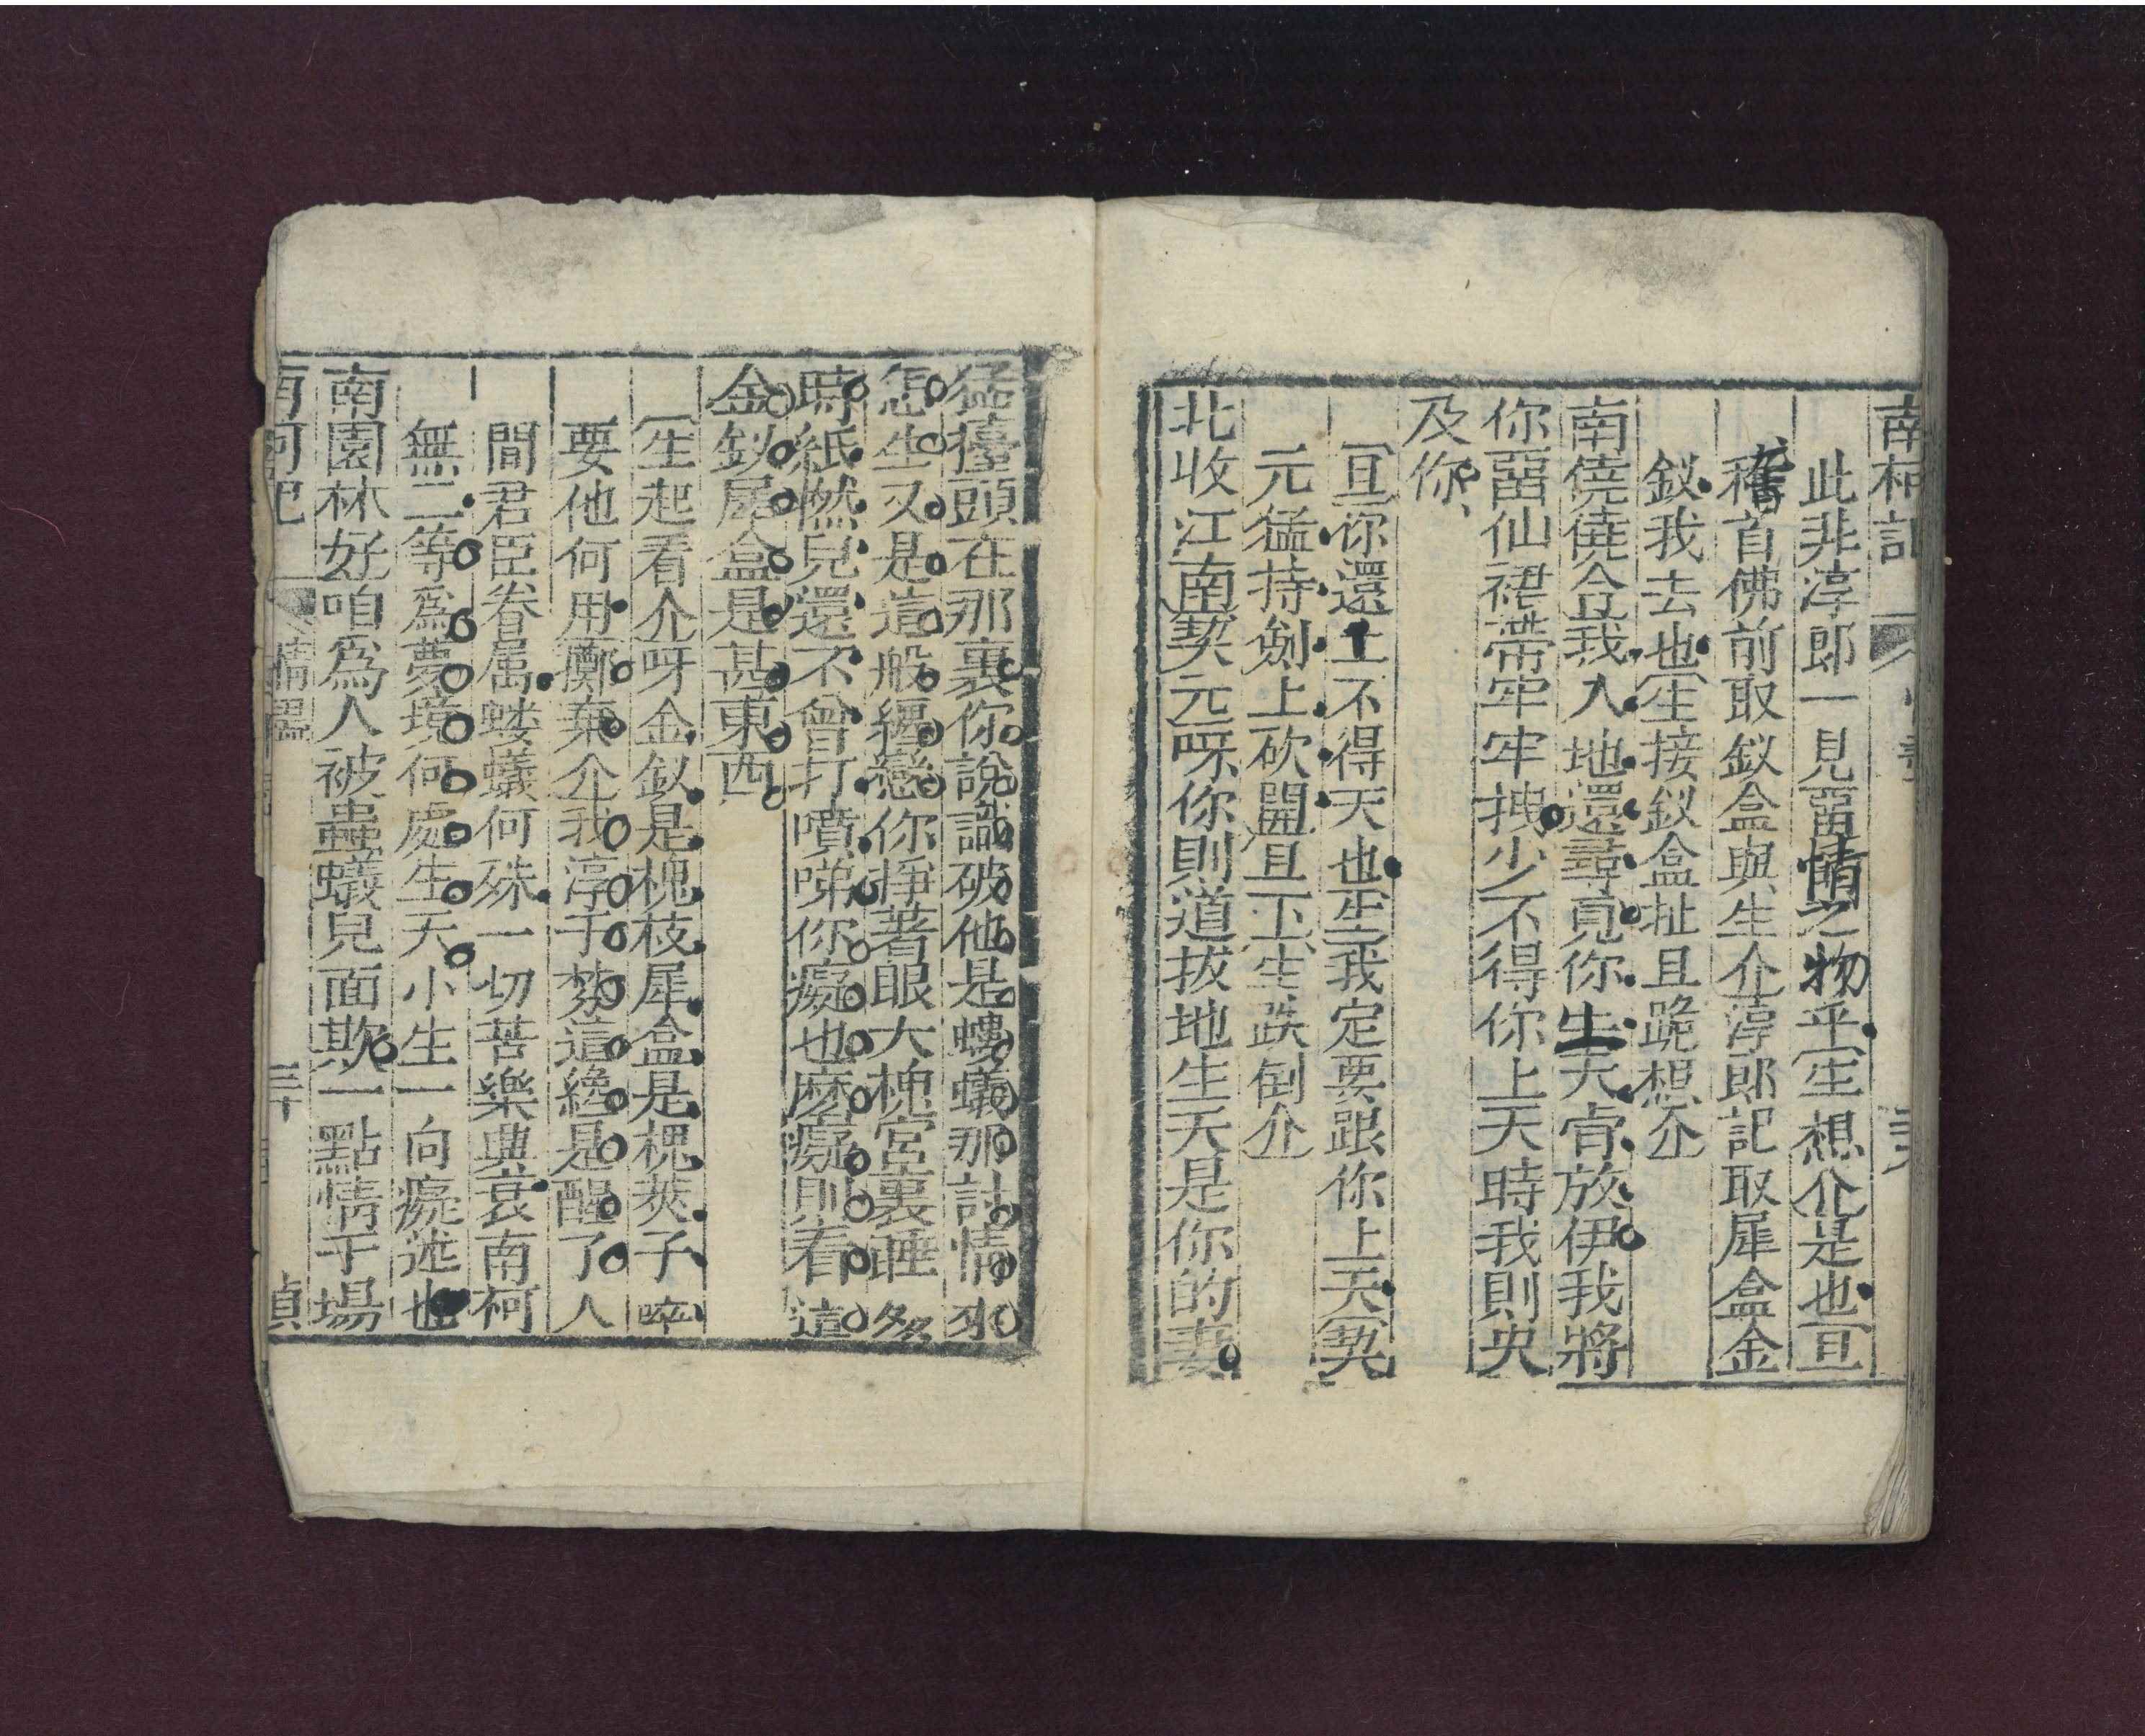 南柯記
此非淳郎一見留情之物乎生想介是也旦
稽首佛前取釵盒與生介淳郎記取犀盒金
釵我去也生接釵盒扯旦跪想介
南僥僥令我入地還尋覓你生天肯放伊我將
你留仙裙帶牢牢拽少不得你上天時我則央
及你
旦你還上不得天也生我定要跟你上天契
元猛持劍上砍開旦下生跌倒介
北收江南契元呀你則道拔地生天是你的妻
猛擡頭在那裏你說識破他是螻蟻那討情來
怎生又是這般纏戀你掙著眼大槐宮裏睡多
時紙撚兒還不曾打噴嚏你癡也麽癡則看這
金釵犀盒是甚東西
生起看介呀金釵是槐枝犀盒是槐莢子啐
要他何用擲棄介我淳于棼這纔是醒了人
間君臣眷属螻蟻何殊一切苦樂興衰南柯
無二等爲夢境何處生天小生一向癡迷也
南園林好咱爲人被蟲蟻兒面欺一點情千場
南柯記 情盡 三十 貞